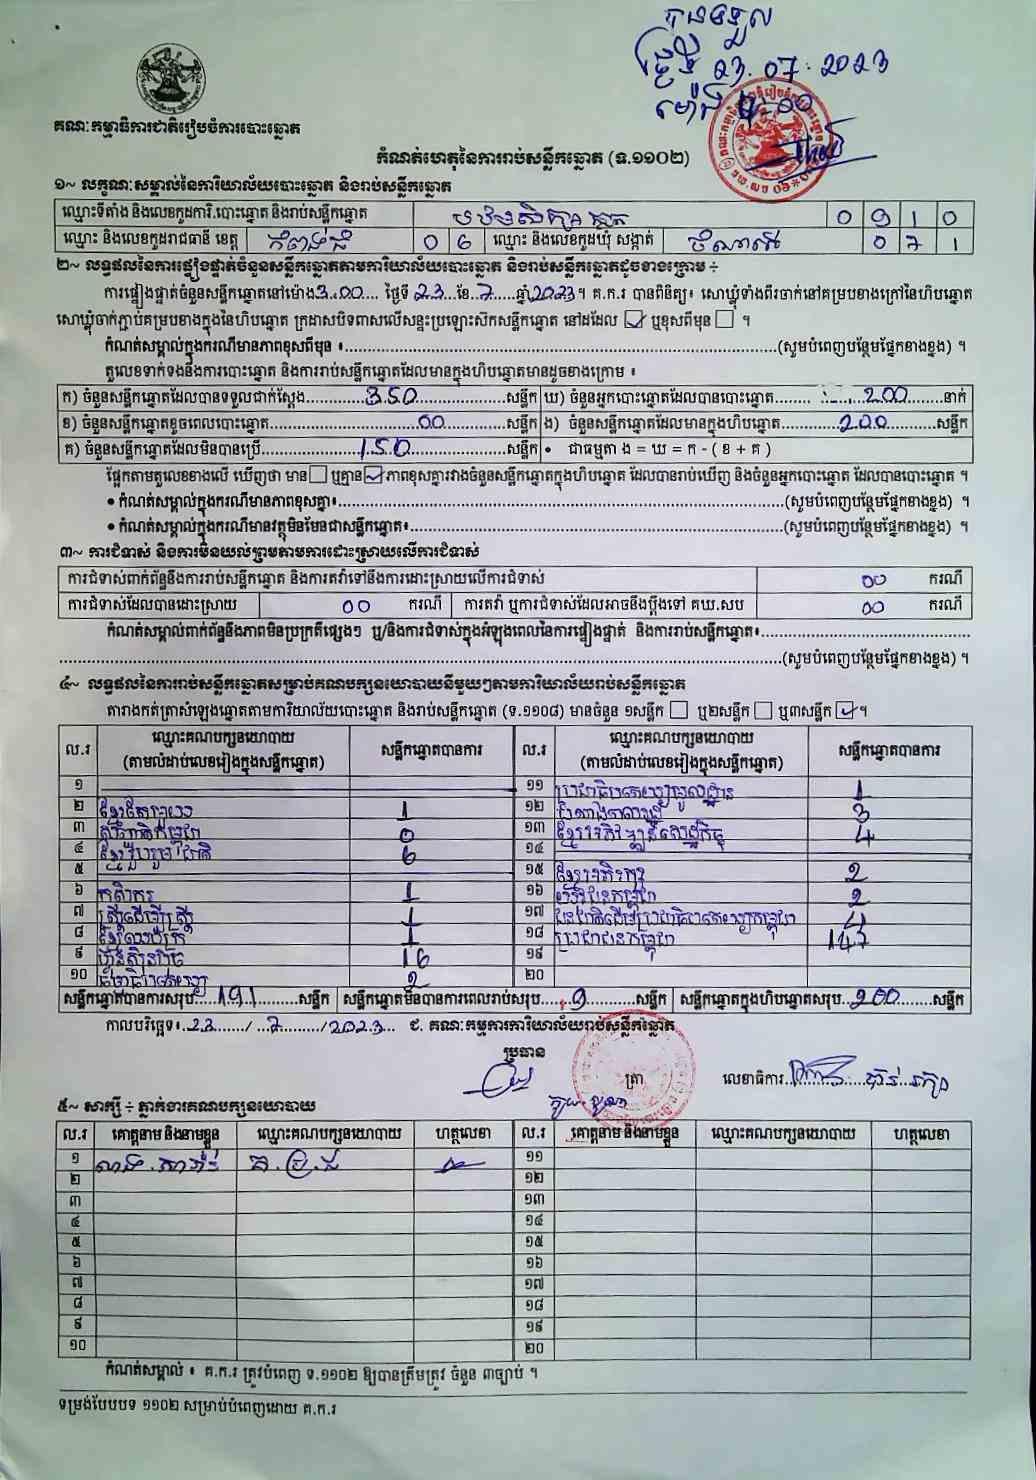 បានទទួល
ថ្ងៃទី 23.07.2023
ម៉ោង
គណៈកម្មាធិការជាតិរៀបចំការបោះឆ្នោត
កំណត់ហេតុនៃការរាប់សន្លឹកឆ្នោត (ទ.១១០២)
១~ លក្ខណៈសម្គាល់នៃការិយាល័យបោះឆ្នោត និងរាប់សន្លឹកឆ្នោត
ឈ្មោះទីតាំង និងលេខកូដការិ.បោះឆ្នោត និងរាប់សន្លឹកឆ្នោត 0 9 1 0
ឈ្មោះ និងលេខកូដរាជធានី ខេត្ត កំពង់ធំ 0 6 ឈ្មោះ និងលេខកូដឃុំ សង្កាត់ 0 7 1
២~ លទ្ធផលនៃការផ្ទៀងផ្ទាត់ចំនួនសន្លឹកឆ្នោតតាមការិយាល័យបោះឆ្នោត និងរាប់សន្លឹកឆ្នោតដូចខាងក្រោម ÷
ការផ្ទៀងផ្ទាត់ចំនួនសន្លឹកឆ្នោតនៅម៉ោង 3.00 ថ្ងៃទី 23 ខែ 7 ឆ្នាំ 2023 ។ គ.ក.រ បានពិនិត្យ៖ សោឃ្លុំទាំងពីរចាក់នៅគម្របខាងក្រៅនៃហិបឆ្នោត
សោឃ្លុំចាក់ភ្ជាប់គម្របខាងក្នុងនៃហិបឆ្នោត ក្រដាសបិទពាសលើសន្ទះប្រឡោះស៊កសន្លឹកឆ្នោត នៅដដែល ☑ ឬខុសពីមុន ☐ ។
កំណត់សម្គាល់ក្នុងករណីមានភាពខុសពីមុន ៖ (សូមបំពេញបន្ថែមផ្នែកខាងខ្នង) ។
តួលេខទាក់ទងនឹងការបោះឆ្នោត និងការរាប់សន្លឹកឆ្នោតដែលមានក្នុងហិបឆ្នោតមានដូចខាងក្រោម ៖
ក) ចំនួនសន្លឹកឆ្នោតដែលបានទទួលជាក់ស្តែង 350 សន្លឹក ឃ) ចំនួនអ្នកបោះឆ្នោតដែលបានបោះឆ្នោត 200 នាក់
ខ) ចំនួនសន្លឹកឆ្នោតខូចពេលបោះឆ្នោត 00 សន្លឹក ង) ចំនួនសន្លឹកឆ្នោតដែលមានក្នុងហិបឆ្នោត 200 សន្លឹក
គ) ចំនួនសន្លឹកឆ្នោតដែលមិនបានប្រើ 150 សន្លឹក • ជាធម្មតា ង = ឃ = ក - ( ខ + គ )
ផ្អែកតាមតួលេខខាងលើ ឃើញថា មាន ☐ ឬគ្មាន ☑ ភាពខុសគ្នារវាងចំនួនសន្លឹកឆ្នោតក្នុងហិបឆ្នោត ដែលបានរាប់ឃើញ និងចំនួនអ្នកបោះឆ្នោត ដែលបានបោះឆ្នោត ។
• កំណត់សម្គាល់ក្នុងករណីមានភាពខុសគ្នា៖ (សូមបំពេញបន្ថែមផ្នែកខាងខ្នង) ។
• កំណត់សម្គាល់ក្នុងករណីមានវត្ថុមិនមែនជាសន្លឹកឆ្នោត៖ (សូមបំពេញបន្ថែមផ្នែកខាងខ្នង) ។
៣~ ការជំទាស់ និងការមិនយល់ព្រមតាមការដោះស្រាយលើការជំទាស់
ការជំទាស់ពាក់ព័ន្ធនឹងការរាប់សន្លឹកឆ្នោត និងការតវ៉ាទៅនឹងការដោះស្រាយលើការជំទាស់ 00 ករណី
ការជំទាស់ដែលបានដោះស្រាយ 00 ករណី ការតវ៉ា ឬការជំទាស់ដែលអាចនឹងប្តឹងទៅ គឃ.សប 00 ករណី
កំណត់សម្គាល់ពាក់ព័ន្ធនឹងភាពមិនប្រក្រតីផ្សេងៗ ឬ/និងការជំទាស់ក្នុងអំឡុងពេលនៃការផ្ទៀងផ្ទាត់ និងការរាប់សន្លឹកឆ្នោត៖
(សូមបំពេញបន្ថែមផ្នែកខាងខ្នង) ។
៤~ លទ្ធផលនៃការរាប់សន្លឹកឆ្នោតសម្រាប់គណបក្សនយោបាយនីមួយៗតាមការិយាល័យរាប់សន្លឹកឆ្នោត
តារាងកត់ត្រាសំឡេងឆ្នោតតាមការិយាល័យបោះឆ្នោត និងរាប់សន្លឹកឆ្នោត (ទ.១១០៨) មានចំនួន ១សន្លឹក ☐ ឬ២សន្លឹក ☐ ឬ៣សន្លឹក ☑ ។
ល.រ ឈ្មោះគណបក្សនយោបាយ (តាមលំដាប់លេខរៀងក្នុងសន្លឹកឆ្នោត) សន្លឹកឆ្នោតបានការ ល.រ ឈ្មោះគណបក្សនយោបាយ (តាមលំដាប់លេខរៀងក្នុងសន្លឹកឆ្នោត) សន្លឹកឆ្នោតបានការ
១ ១១ ប្រជាធិបតេយ្យមូលដ្ឋាន 1
២ 1 ១២ 3
៣ 0 ១៣ ខ្មែរអភិវឌ្ឍន៍សេដ្ឋកិច្ច 4
៤ ខ្មែររួបរួមជាតិ 6 ១៤
៥ ១៥ 2
៦ កសិករ 1 ១៦ 2
៧ ស្ត្រីដើម្បីស្ត្រី 1 ១៧ 4
៨ 1 ១៨ ប្រជាជនកម្ពុជា 147
៩ ហ៊្វុនស៊ិនប៉ិច 16 ១៩
១០ 2 ២០
សន្លឹកឆ្នោតបានការសរុប 191 សន្លឹក សន្លឹកឆ្នោតមិនបានការពេលរាប់សរុប 9 សន្លឹក សន្លឹកឆ្នោតក្នុងហិបឆ្នោតសរុប 200 សន្លឹក
កាលបរិច្ឆេទ៖ 23 / 7 / 2023 ជ. គណៈកម្មការការិយាល័យរាប់សន្លឹកឆ្នោត
ប្រធាន
ត្រា លេខាធិការ
៥~ សាក្សី ÷ ភ្នាក់ងារគណបក្សនយោបាយ
ល.រ គោត្តនាម និងនាមខ្លួន ឈ្មោះគណបក្សនយោបាយ ហត្ថលេខា ល.រ គោត្តនាម និងនាមខ្លួន ឈ្មោះគណបក្សនយោបាយ ហត្ថលេខា
១ គ.ប្រ.ជ ១១
២ ១២
៣ ១៣
៤ ១៤
៥ ១៥
៦ ១៦
៧ ១៧
៨ ១៨
៩ ១៩
១០ ២០
កំណត់សម្គាល់ ៖ គ.ក.រ ត្រូវបំពេញ ទ.១១០២ ឱ្យបានត្រឹមត្រូវ ចំនួន ៣ច្បាប់ ។
ទម្រង់បែបបទ ១១០២ សម្រាប់បំពេញដោយ គ.ក.រ